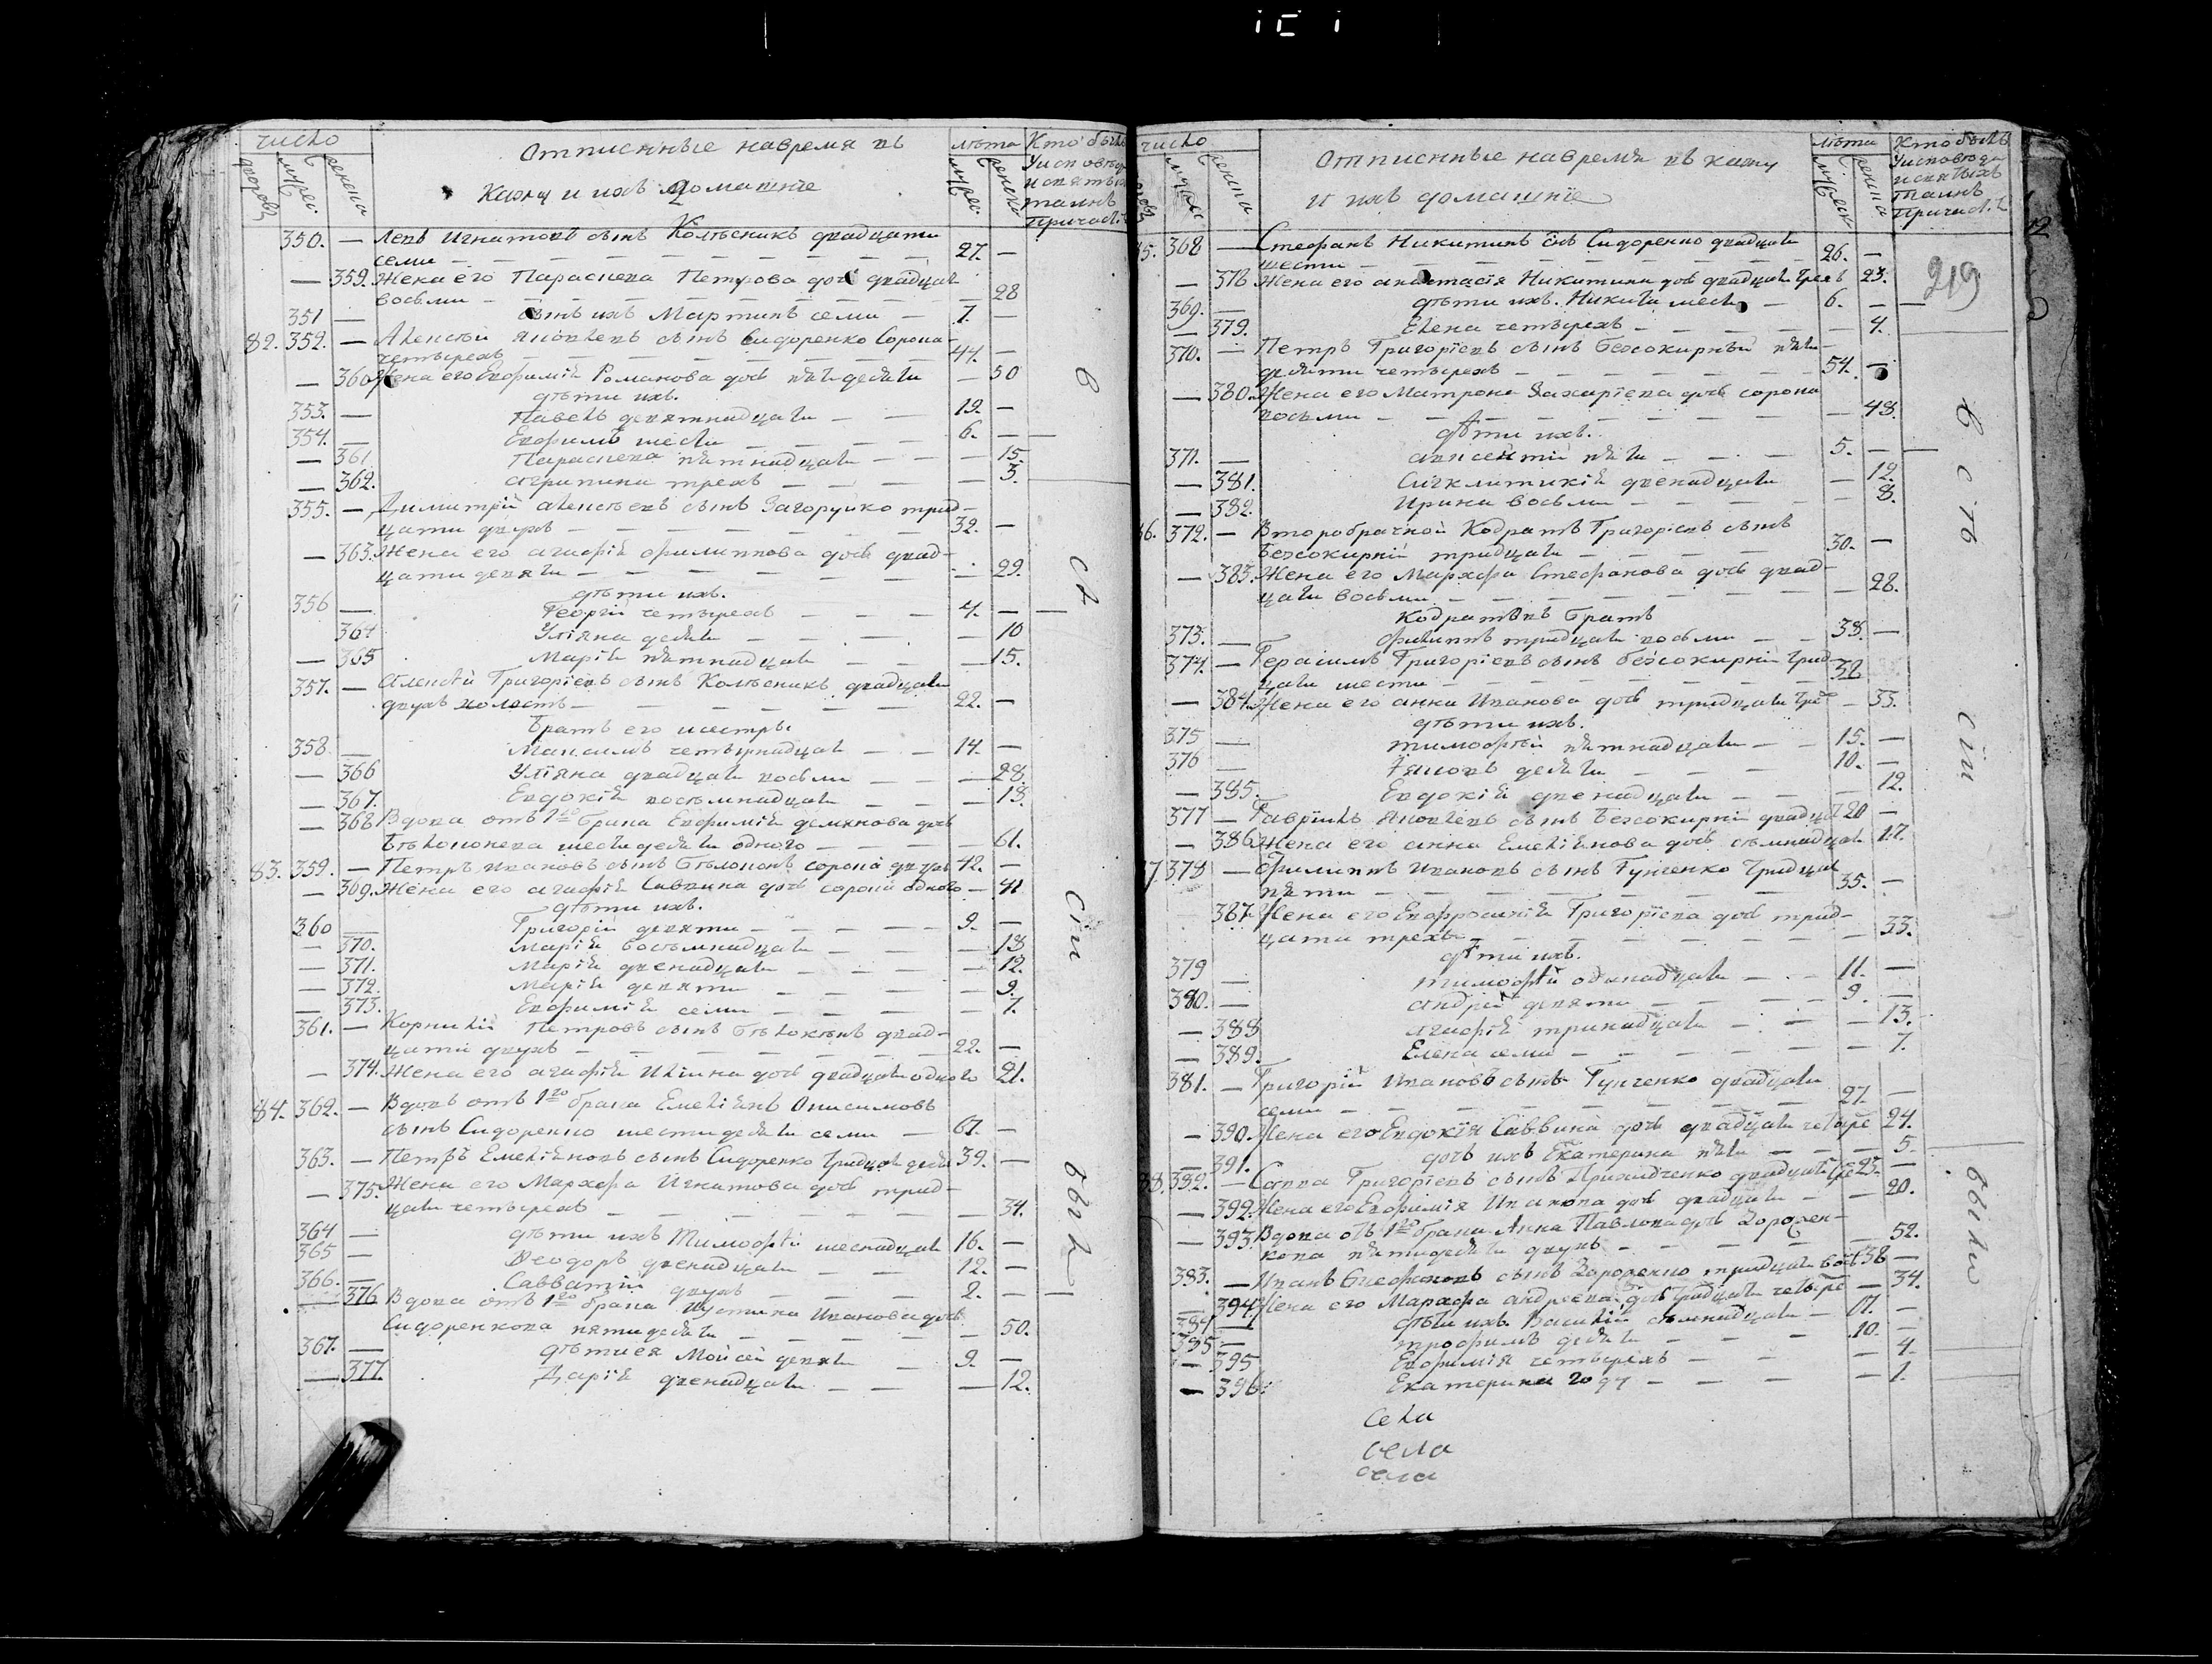 число
дворовъ
мужес:
женска
Отписнные навремя въ
казну и ихъ домашнїе
лѣта
мужес:
женска
Кто былъ
У исповѣди
и святыхъ
таинъ
причаст:
350. — Левъ Игнатовъ сынъ Колѣсникъ двадцати
семи — 27. —
— 359. Жена его Параскева Петрова дочь двадцать
восьми — 28
351 — сынъ ихъ Мартинъ семи — 7. —
82. 352. — Алексѣй Яковлевъ сынъ Сидоренко сорока
четырехъ — 44. —
— 360 Жена его Евфимїя Романова дочь пятьдесяти — 50
дѣти ихъ.
353. — Павелъ девятнадцати — 19. —
354. — Евфимъ шести — 6. —
— 361 Параскева пятнадцати — 15.
— 362. Агрипина трехъ — 3.
355. — Димитрїй Алексѣевъ сынъ Загоруйко трид-
цати двухъ — 32. —
— 363. Жена его Агафїя Филиппова дочь двад-
цати девяти — 29.
дѣти ихъ.
356 — Георгїй четырехъ — 4. —
364 Улїяна десяти — 10
— 365 Марїя пятнадцати — 15.
357. — Алексѣй Григорїевъ сынъ Колѣсникъ двадцати
двухъ холостъ — 22. —
Братъ его и сестры
358 — Максимъ четырнадцати — 14. —
— 366 Улїяна двадцати восьми — 28.
— 367. Евдокїя восемнадцати — 18.
— 368 Вдова отъ 1го брака Евфимїя Демянова дочь
Бѣлоконева шестидесяти одного — 61.
83. 359. — Петръ Ивановъ сынъ Бѣлоконь сорока двухъ 42. —
— 369. Жена его Агафїя Саввина дочь сорока одного — 41
дѣти ихъ.
360 — Григорїй девяти — 9. —
— 370. Марїя восемнадцати — 18
— 371. Марїя двенадцати — 12.
— 372. Марїя девяти — 9.
— 373. Евфимїя семи — 7.
361. — Корнилїй Петровъ сынъ Бѣлоконь двад-
цати двухъ — 22. —
— 374. Жена его Агафїя Илїина дочь двадцати одного 21.
84. 362. — Вдовъ отъ 1го брака Емелїянъ Онисимовъ
сынъ Сидоренко шестидесяти семи — 67. —
363. — Петръ Емелїяновъ сынъ Сидоренко тридцать девя 39. —
— 375. Жена его Марфа Игнатова дочь трид-
цати четырехъ — 34.
364 — дѣти ихъ Тимофѣй шеснадцати 16. —
365 — Ѳеодоръ двенадцати — 12. —
366. — Савватїй двухъ — 2. —
— 376 Вдова отъ 1го брака Иустина Иванова дочь
Сидоренкова пятидесяти — 50.
367. — дѣти ея Мойсей девяти — 9. —
— 377 Дарїя двенадцати — 12.
всѣ сїи были
число
мужес:
женска
Отписнные навремя въ казну
и ихъ домашнїе
лѣта
мужеск
женска
Кто былъ
У исповѣди
и святыхъ
таинъ
причаст:
219
85. 368 — Стефанъ Никитинъ снъ Сидоренко двадцати
шести — 26. —
— 378 Жена его Анастасїя Никитина дочь двадцати трехъ 23.
369. — дѣти ихъ. Никита шести — 6. —
— 379. Елена четырехъ — 4.
370. — Петръ Григорїевъ сынъ Безсокирный пяти-
десяти четырехъ — 54. —
— 380. Жена его Матрона Захарїева дочь сорока
восьми — 48.
дѣти ихъ.
371. — Авксентїй пяти — 5. —
— 381. Сигклитикїя двенадцати — 12.
— 382. Ирина восьми — 8.
86. 372. — Второбрачной Кодратъ Григорїевъ сынъ
Безсокирнїй тридцати — 30. —
— 383. Жена его Марфа Стефанова дочь двад-
цати восьми — 28.
Кодратовъ братъ
373. — Филиппъ тридцати восьми — 38. —
374. — Герасимъ Григорїевъ сынъ Безсокирнїй трид-
цати шести —
— 384. Жена его Анна Иванова дочь тридцати тре — 33.
дѣти ихъ.
375 — Тимофѣй пятнадцати — 15. —
376 — Іяковъ десяти — 10. —
— 385. Евдокїя двенадцати — 12.
377 — Гаврїилъ Яковлевъ сынъ Безсокирнїй двадца 20 —
— 386 Жена его Анна Емелїянова дочь семнадцати 17.
87. 378 — Филиппъ Ивановъ сынъ Гунченко тридцати
пяти — 35. —
387. Жена его Евфросинїя Григорїева дочь трид-
цати трехъ — 33.
дѣти ихъ.
379 — Тимофѣй одинадцати — 11. —
380. — Андрей девяти — 9. —
— 388 Агафїя тринадцати — 13.
— 389. Елена семи — 7.
381. — Григорїй Ивановъ сынъ Гунченко двадцати
семи — 27. —
— 390. Жена его Евдокїя Саввина дочь двадцати четыре 24.
— 391. дочь ихъ Екатерина пяти — 5.
88. 382. — Савва Григорїевъ сынъ двадцати тре 23. —
— 392. Жена его Евфимїя Иванова дочь двадцати — 20.
— 393. Вдова отъ 1го брака Анна Павлова дочь
кова пятидесяти двухъ — 52.
383. — Иванъ Стефановъ сынъ тридцати вось 38 —
— 394 Жена его Марфа Андреева дочь тридцати четыре — 34.
384 — дѣти ихъ. Василїй семнадцати — 17. —
385 — Трофимъ десяти — 10. —
— 395 Евфимїя четырехъ — 4.
— 396. Екатерина году — 1.
всѣ сїи были
села
села
села